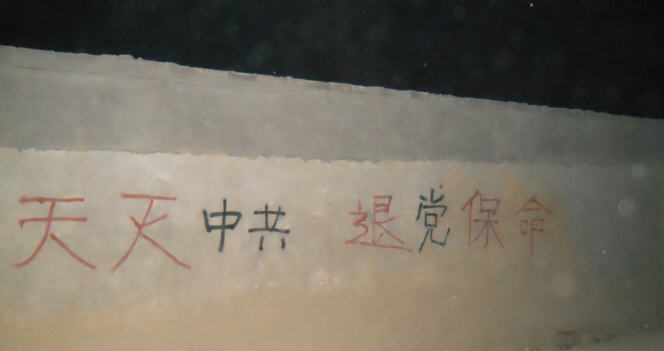 天灭中共 退党保命